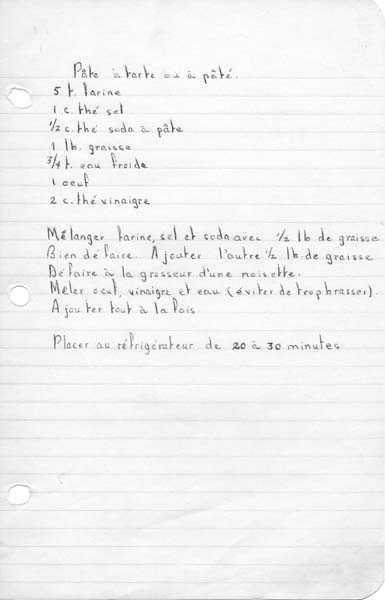 Pâte à tarte ou à pâté.
5 t. farine
1 c. thé sel
1/2 c. thé soda à pâte
1 lb. graisse
3/4 t. eau froide
1 oeuf
2 c. thé vinaigre
Mélanger farine, sel et soda avec 1/2 lb de graisse
Bien défaire. Ajouter l'autre 1/2 lb. de graisse
Défaire à la grosseur d'une noisette.
Mêler oeuf, vinaigre et eau (éviter de trop brasser).
Ajouter tout à la fois
Placer au réfrigérateur de 20 à 30 minutes